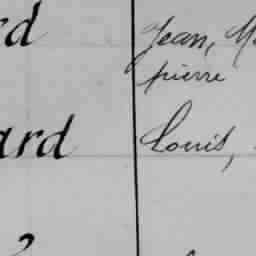 rd Jean, M
pierre
ard Louis,